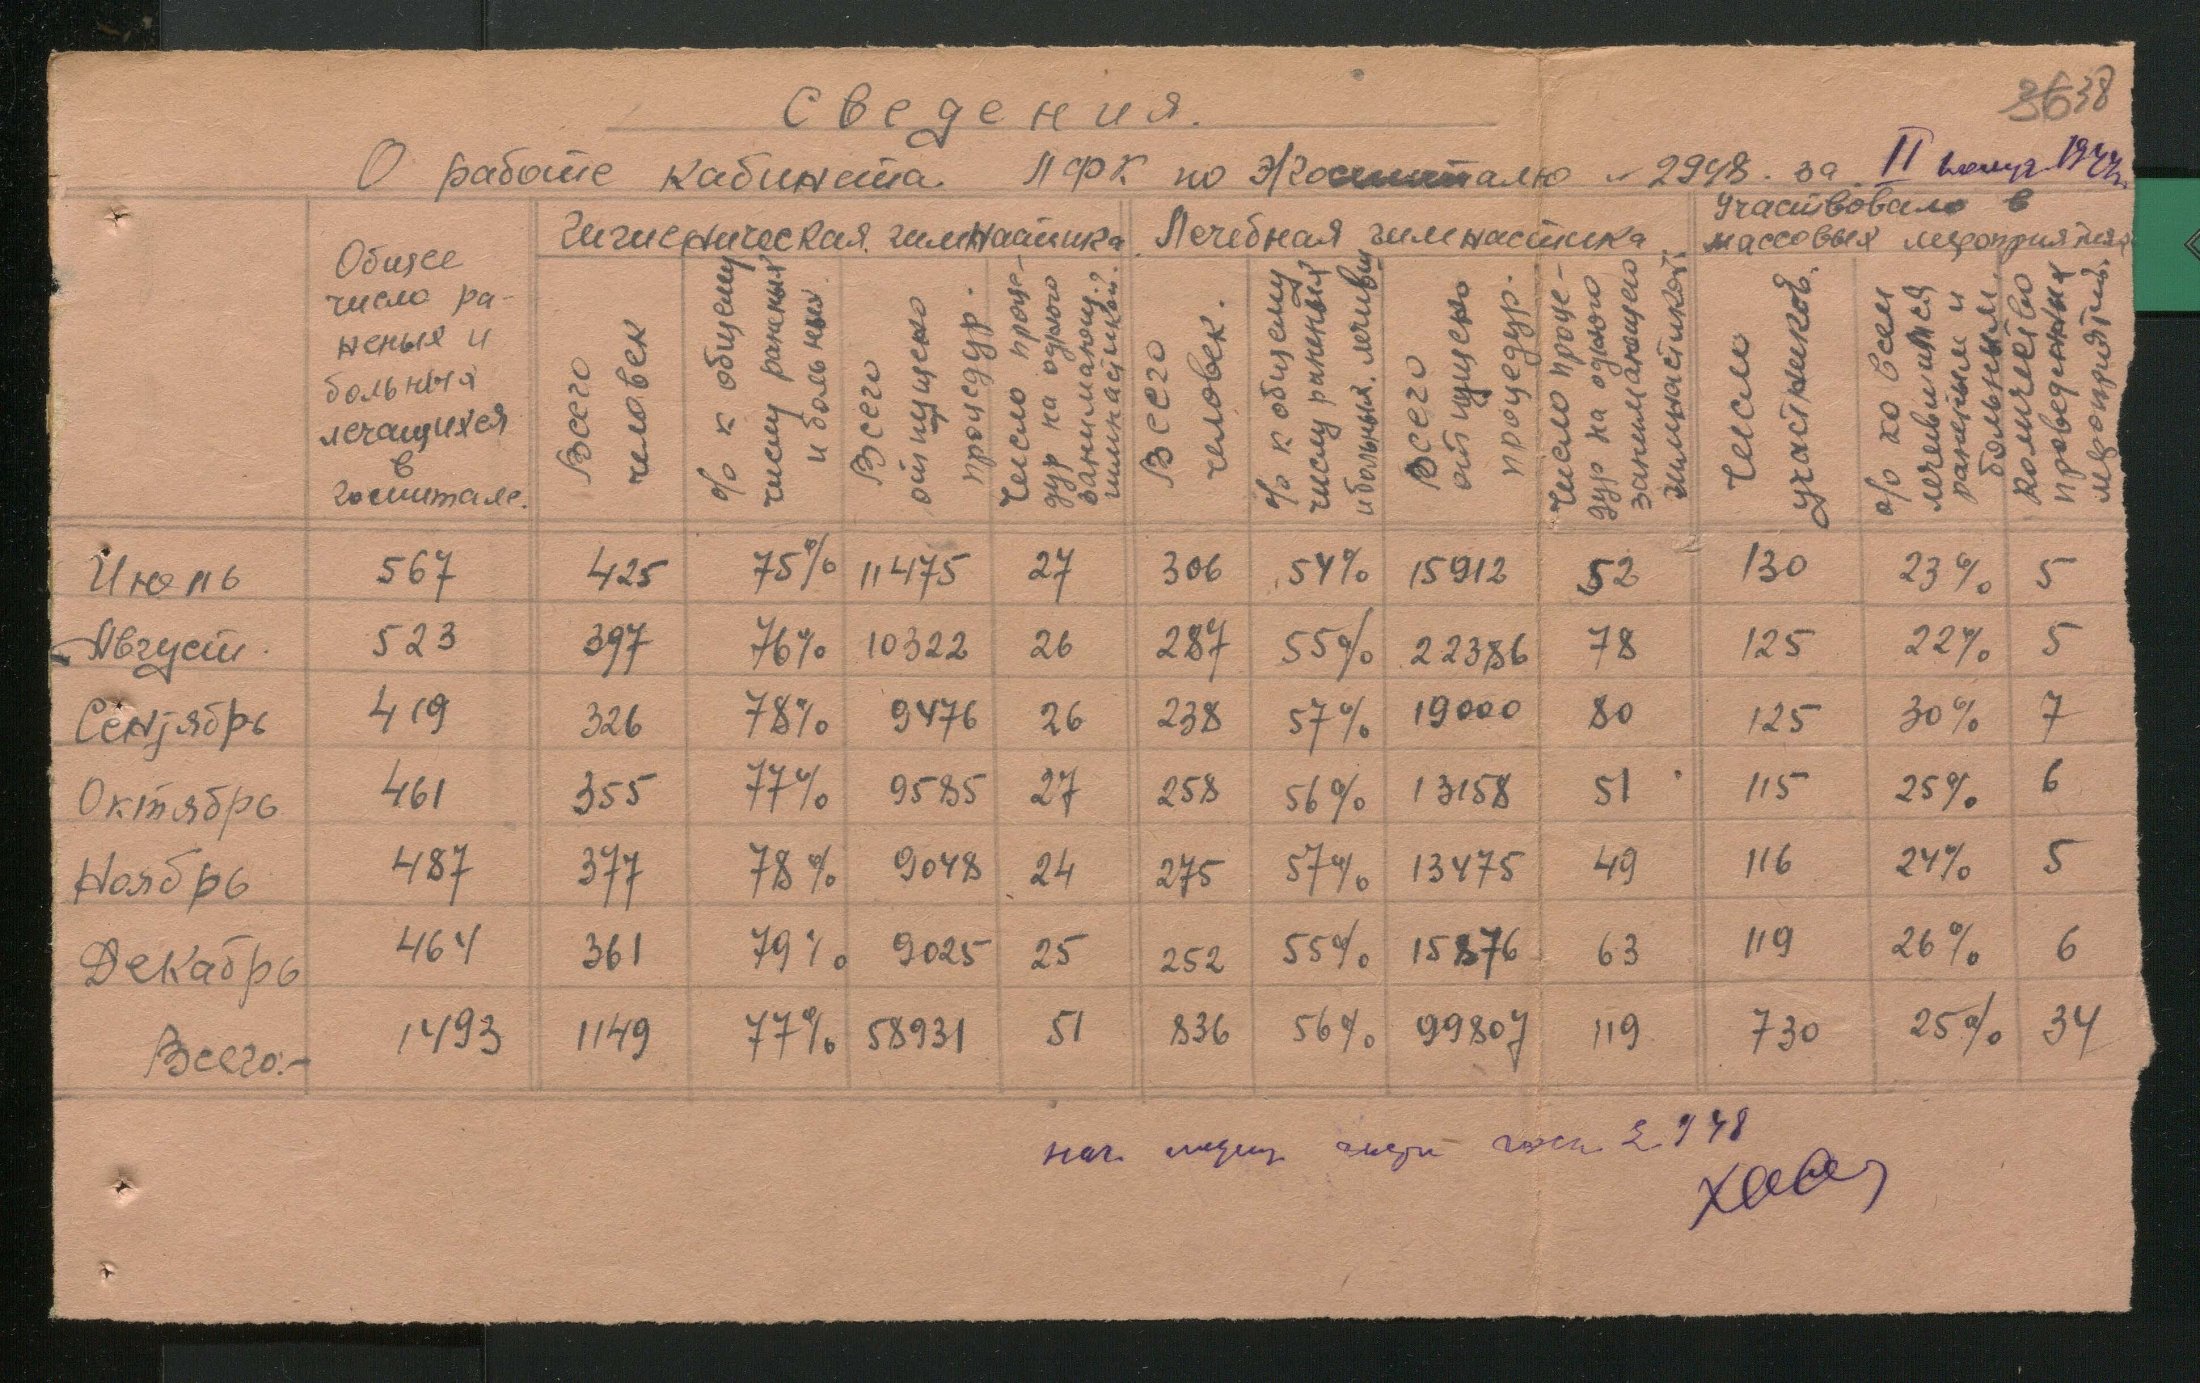 38
Сведения.
О работе кабинета ЛФК по Э/Госпиталю - 2948. за II полуг. 1944г.
Общее число раненых и больных лечащихся в госпитале.
Гигиеническая гимнастика
Всего человек
% к общему числу раненых и больных
Всего отпущено процедур.
Число процедур на одного занимающ. гимнастикой.
Лечебная гимнастика
Всего человек.
% к общему числу раненых и больных лечивш
Всего отпущено процедур.
Число процедур на одного занимающего гимнастикой.
Участвовало в массовых мероприятиях
Число участников.
% ко всем лечевшимся раненым и больным
количество проведенных мероприятий.
Июль 567 425 75% 11475 27 306 54% 15912 52 130 23% 5
Август. 523 397 76% 10322 26 287 55% 22386 78 125 22% 5
Сентябрь 419 326 78% 9476 26 238 57% 19000 80 125 30% 7
Октябрь 461 355 77% 9585 27 258 56% 13158 51 115 25% 6
Ноябрь 487 377 78% 9048 24 275 57% 13475 49 116 24% 5
Декабрь 464 361 79% 9025 25 252 55% 15876 63 119 26% 6
Всего:- 1493 1149 77% 58931 51 836 56% 99807 119 730 25% 34
нач. части госп. 2948